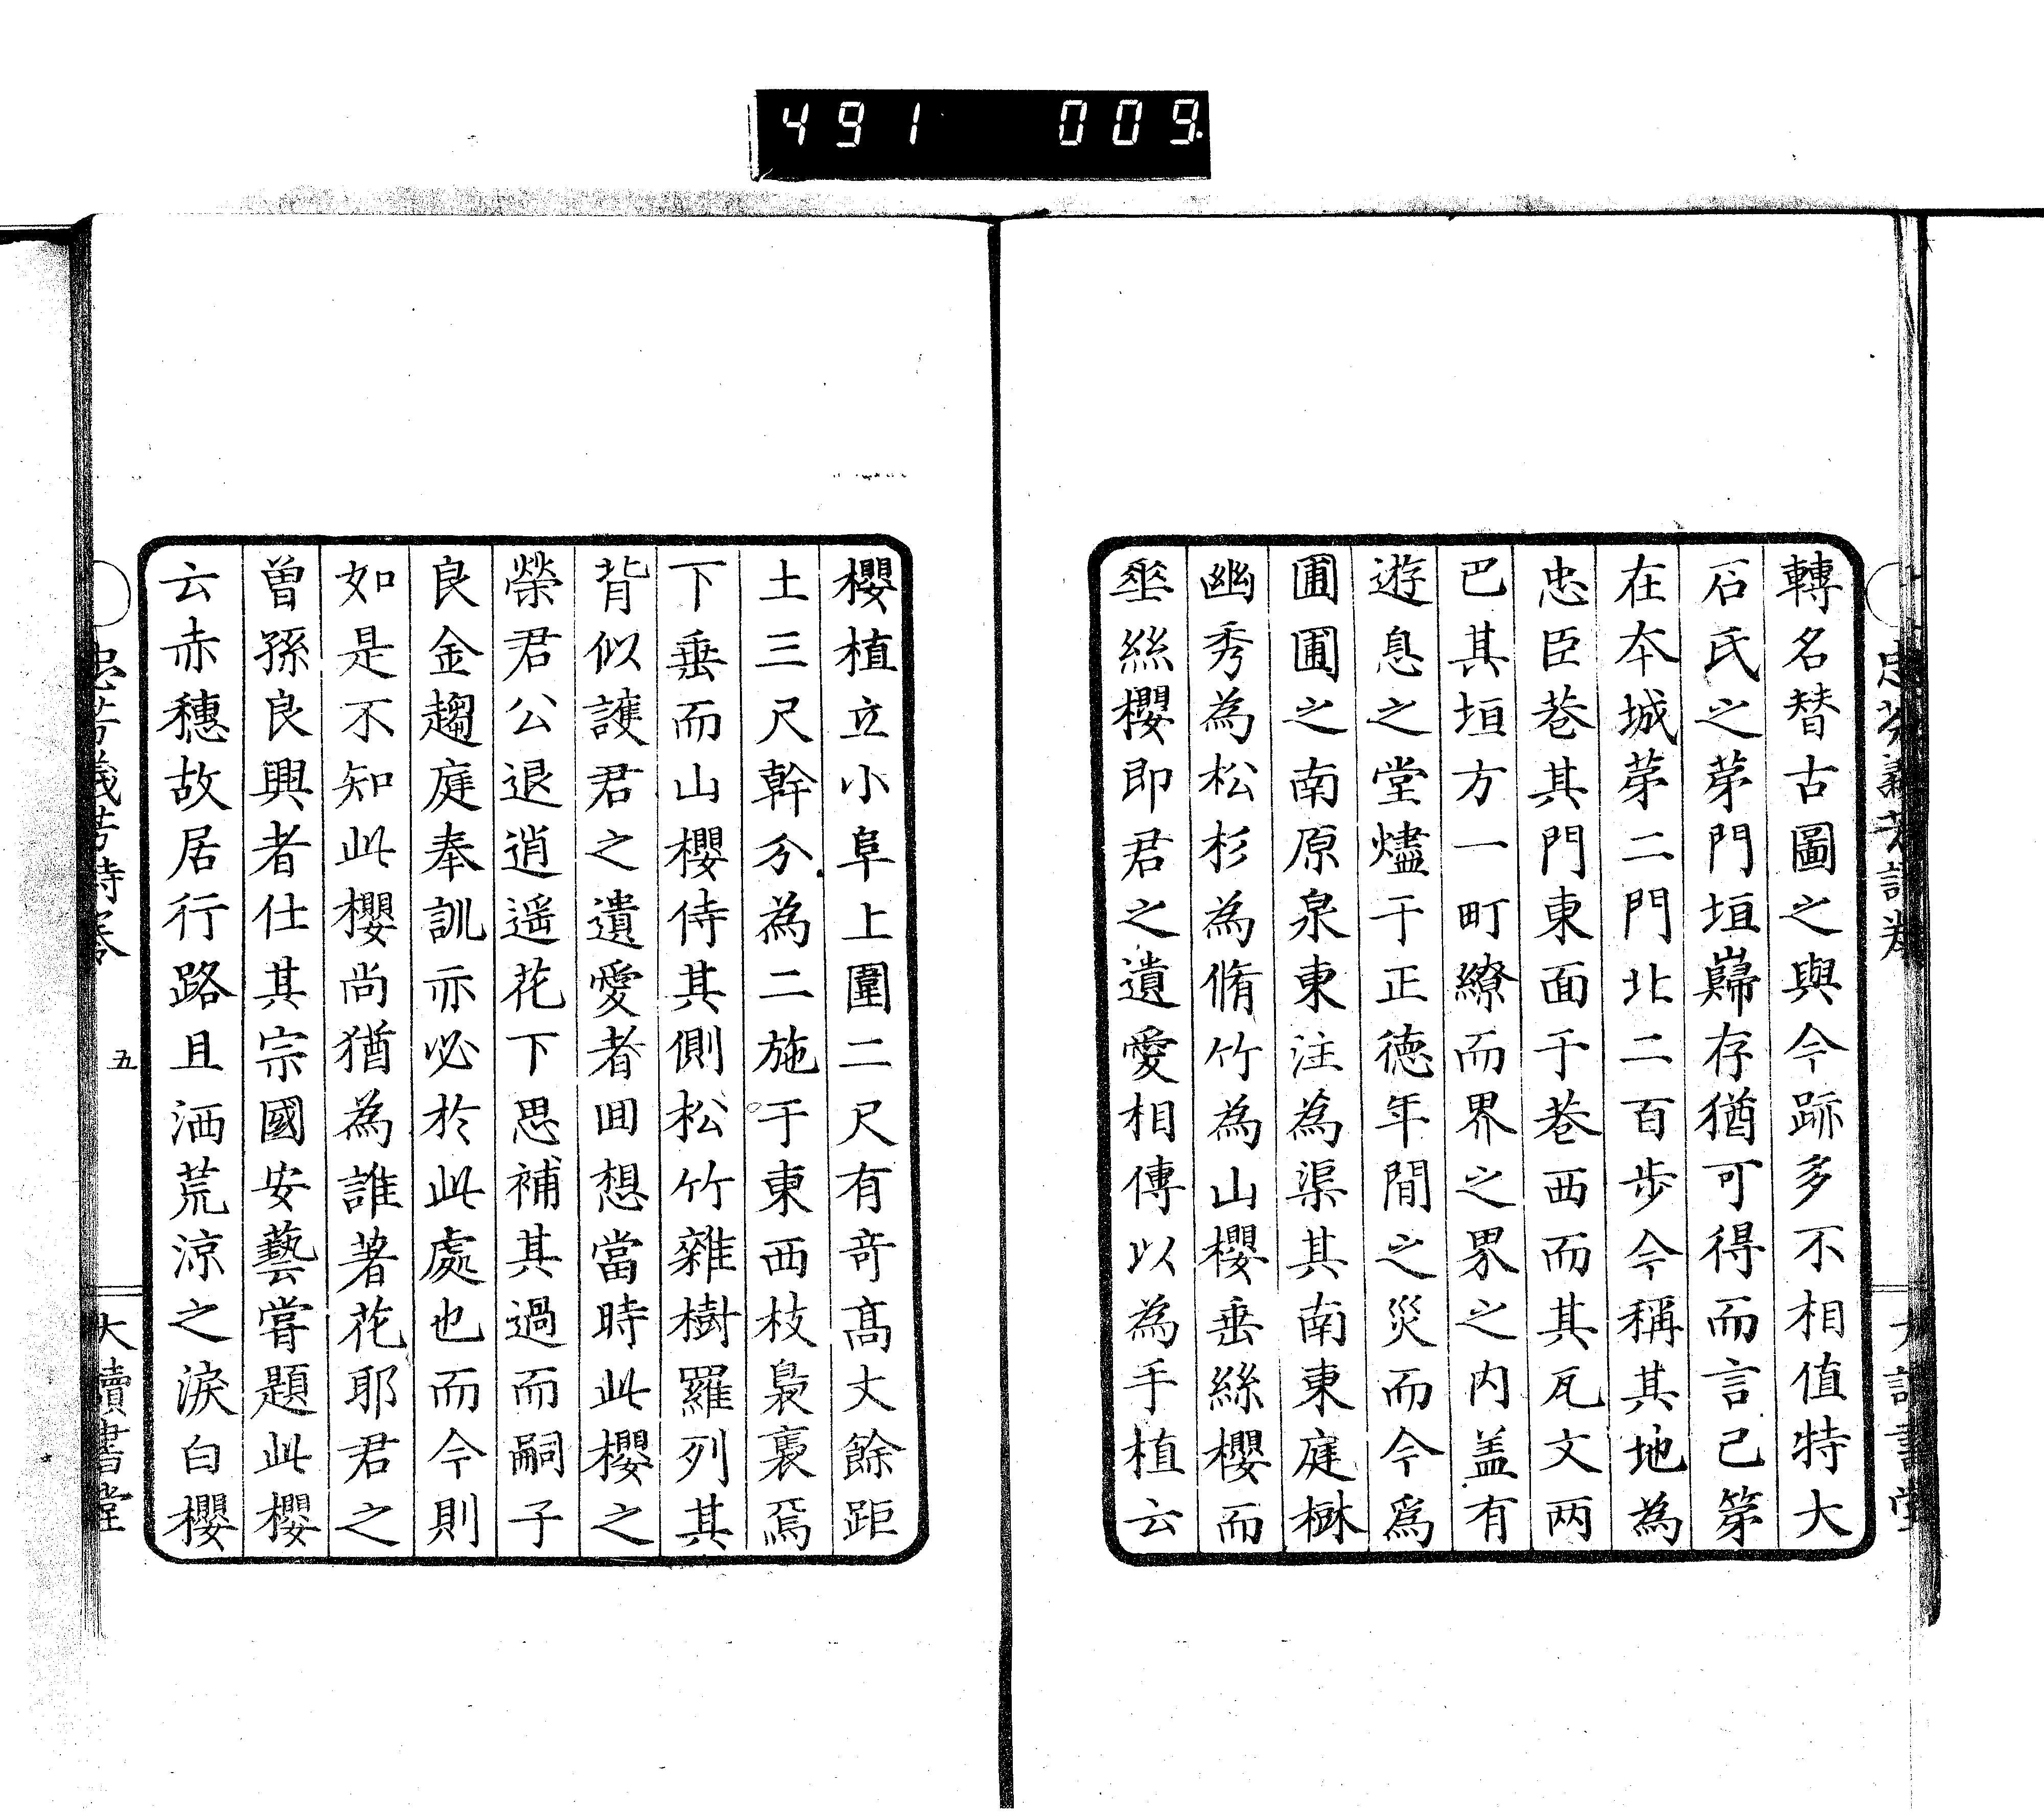 491 009
轉名替古圖之與今跡多不相值特大
石氏之茅門垣巋存猶可得而言己第
在夲城茅二門北二百步今稱其地為
忠臣巷其門東面于巷西而其瓦文兩
巴其垣方一町繚而界之界之内盖有
遊息之堂燼于正德年間之災而今爲
圃圃之南原泉東注為渠其南東庭楙
幽秀為松杉為脩竹為山櫻垂絲櫻而
垂絲櫻即君之遺愛相傳以為手植云
櫻植立小阜上圍二尺有奇髙丈餘距
土三尺幹分為二施于東西枝裊裏焉
下垂而山櫻侍其側松竹雜樹羅列其
背似護君之遺愛者回想當時此櫻之
榮君公退逍遥花下思補其過而嗣子
良金趨庭奉訓亦必於此處也而今則
如是不知此櫻尚猶為誰著花耶君之
曽孫良興者仕其宗國安藝嘗題此櫻
云赤穗故居行路且洒荒涼之淚白櫻
五
大讀書堂